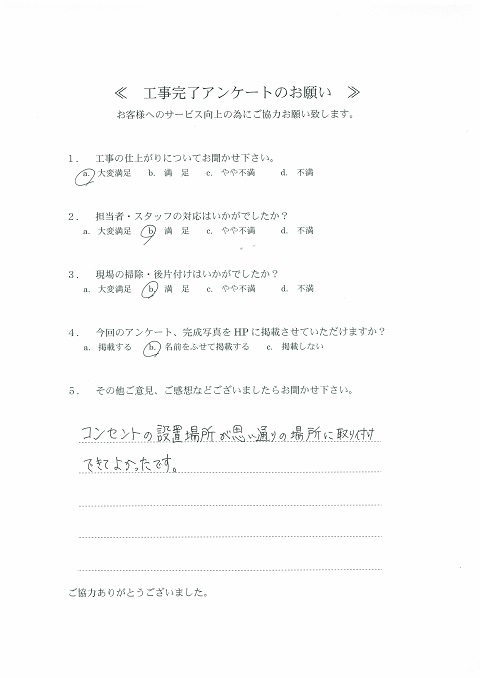 ≪ 工事完了アンケートのお願い ≫
お客様へのサービス向上の為にご協力お願い致します。
1． 工事の仕上がりについてお聞かせ下さい。
a. 大変満足 b. 満 足 c. やや不満 d. 不満
2． 担当者・スタッフの対応はいかがでしたか？
a. 大変満足 b. 満 足 c. やや不満 d. 不満
3． 現場の掃除・後片付けはいかがでしたか？
a. 大変満足 b. 満 足 c. やや不満 d. 不満
4． 今回のアンケート、完成写真をHPに掲載させていただけますか？
a. 掲載する b. 名前をふせて掲載する c. 掲載しない
5． その他ご意見、ご感想などございましたらお聞かせ下さい。
コンセントの設置場所が思い通りの場所に取り付け
できてよかったです。
ご協力ありがとうございました。